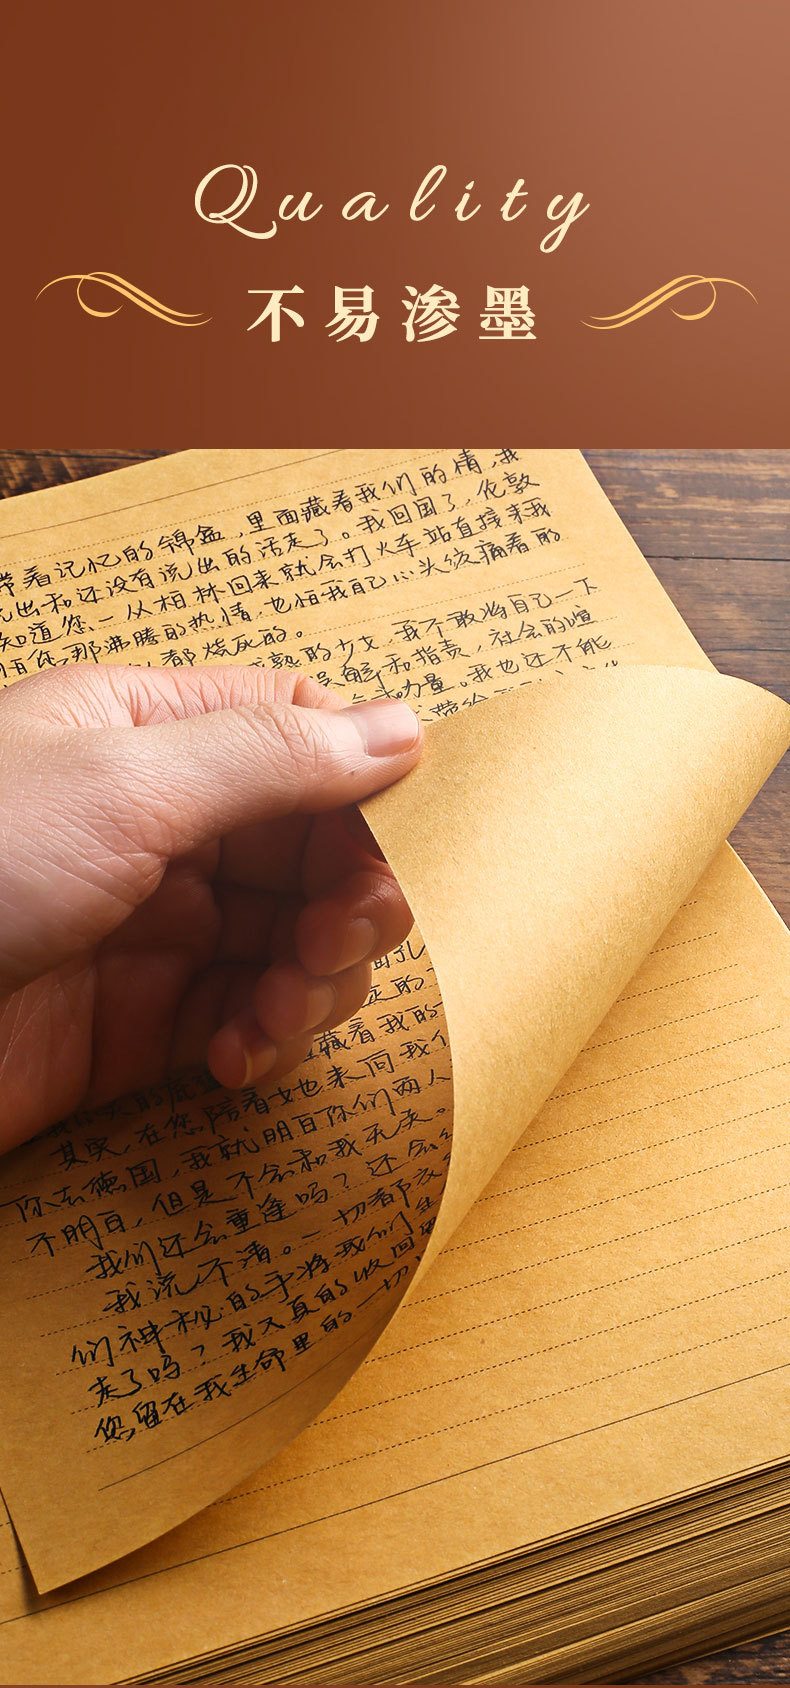 Quality
不易渗墨
带着记忆的锦盒,里面藏着我们的情,我
出和还没有流出的话走了。我回国了,伦敦
知道您、一从柏林回来就会打火车站直接来我
您那沸腾的热情,也怕我自己心头绞痛着的
都烧死的。
熟的少女,我不敢将自己一下
误解和指责,社会的喧
力量。我也还不能
带给
面孔
的
藏着我的
其实,在您陪着她来问我们
你去德国,我就明白你们两人
不明白,但是不会和我无关。
我们还会重逢吗?还会
我流不清。一切都
们神秘的手将我们
走了吗?我又真的收回
您留在我生命里的一切